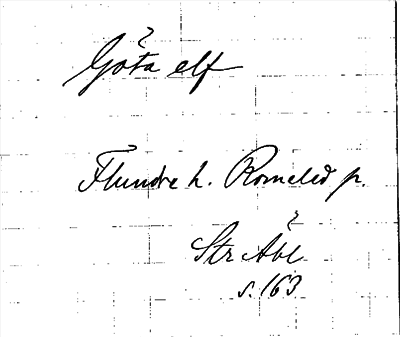 Göta elf
Flundre h. Romeled p.
Str Åve
s. 163